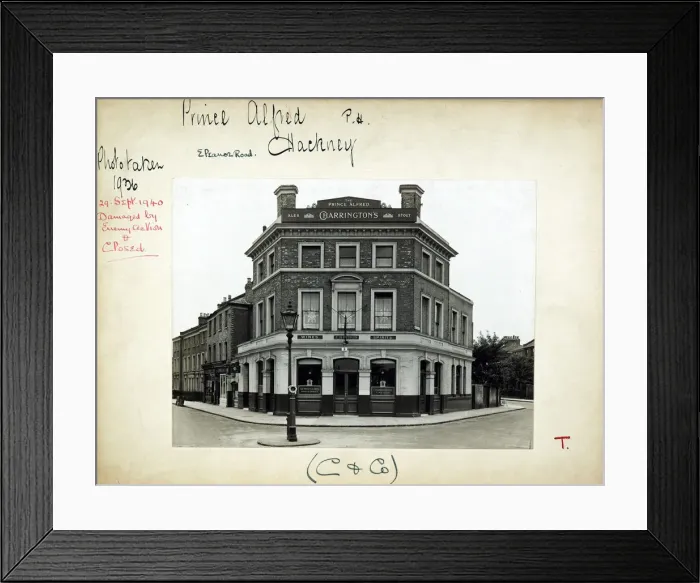 Prince Alfred P.H.
Hackney
Eleanor Road.
Photo taken
1936
29. Sept. 1940
Damaged by
Enemy action
&
Closed
THE
PRINCE ALFRED
ALES CHARRINGTON'S STOUT
WINES SPIRITS
T.
(C & Co)